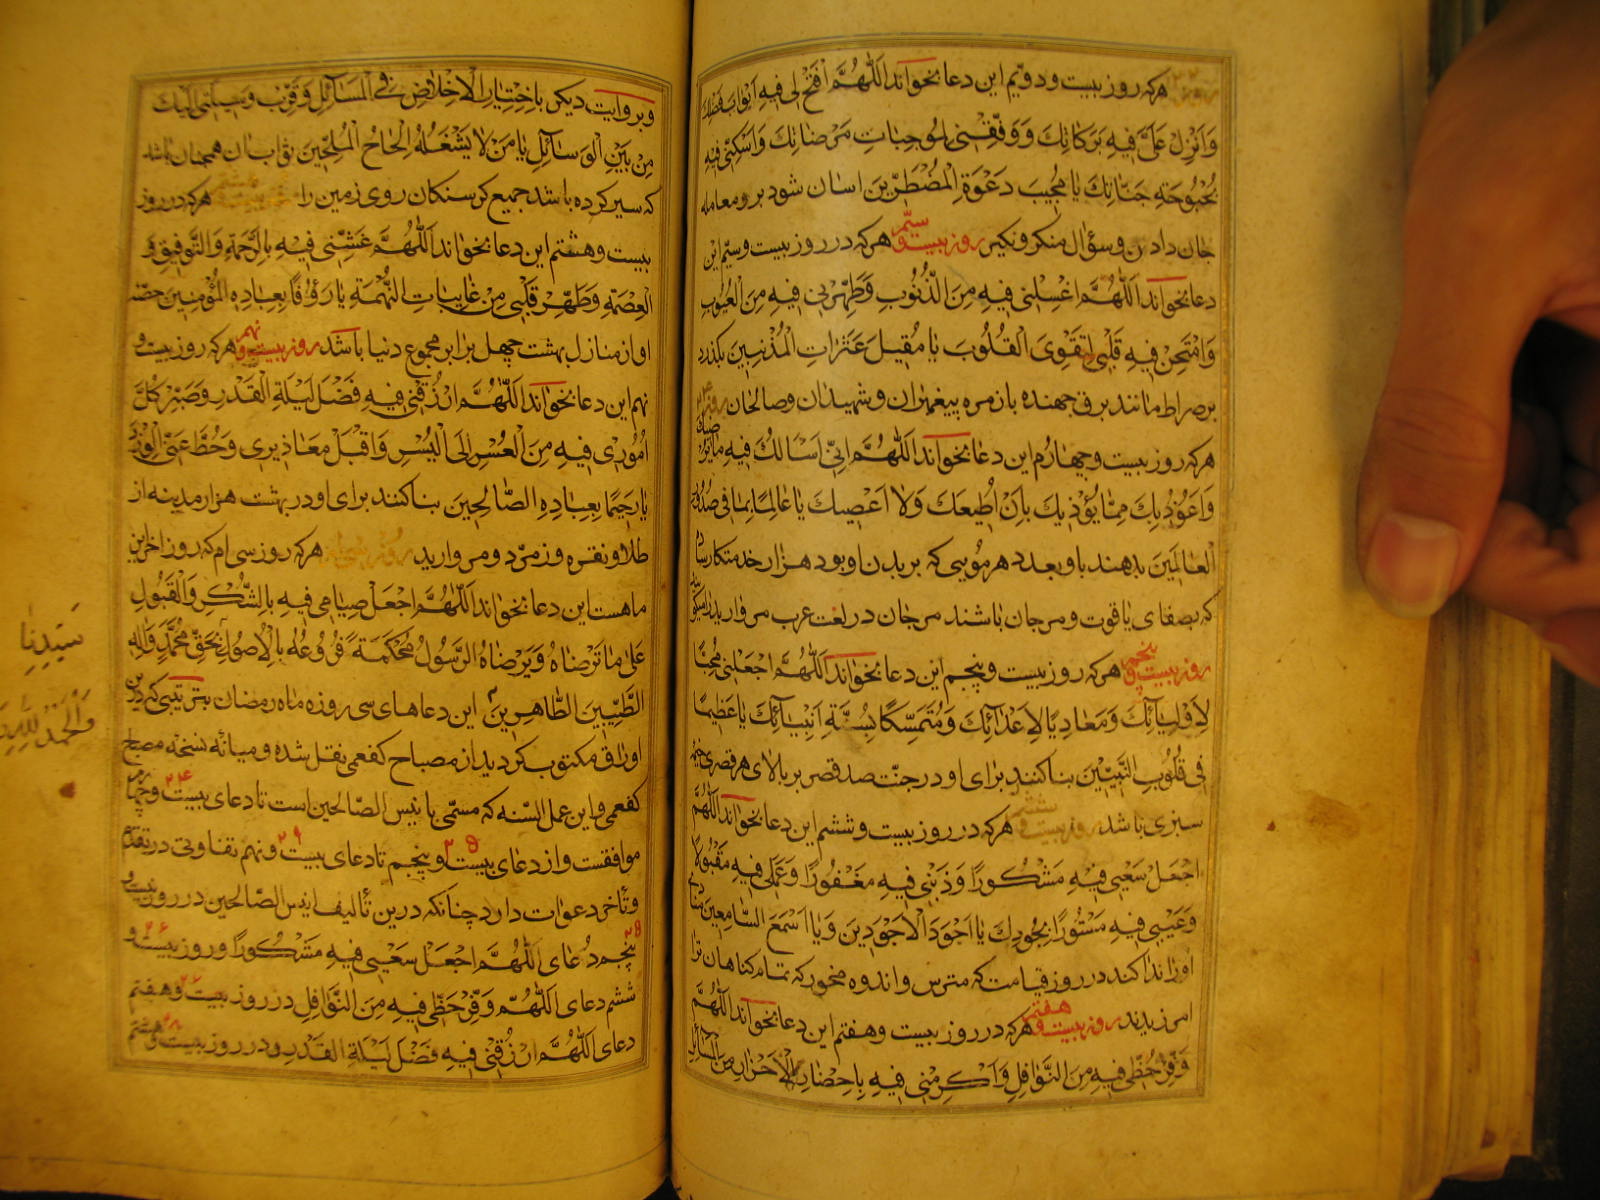 هرکه روز بیست و دویم این دعا بخواند اللّٰهُمَّ افْتَحْ لی فیهِ اَبْوابَ فَضْلِكَ
وَاَنْزِلْ عَلَیَّ فیهِ بَرَکاتِكَ وَوَفِّقْنی لِمُوجِباتِ مَرْضاتِكَ وَاَسْکِنّی فیهِ
بُحْبُوحَةِ جَنّاتِكَ یا مُجیبَ دَعْوَةِ الْمُضْطَرّینَ اسان شود برو معامله
جان دادن و سؤال منکر و نکیر روز بیست و سیّم هرکه در روز بیست و سیّم این
دعا بخواند اللّٰهُمَّ اغْسِلْنی فیهِ مِنَ الذُّنُوبِ وَطَهِّرْنی فیهِ مِنَ الْعُیُوبِ
وَامْتَحِنْ فیهِ قَلْبی بِتَقْوَی الْقُلُوبِ یا مُقیلَ عَثَراتِ الْمُذْنِبینَ بگذرد
بر صراط مانند برق جهنده با زمره پیغمبران و شهیدان و صالحان
هرکه روز بیست و چهارم این دعا بخواند اللّٰهُمَّ اِنّی اَسْاَلُكَ فیهِ ما یُرْضیكَ
وَاَعُوذُ بِكَ مِمّا یُؤْذیكَ بِاَنْ اُطیعَكَ وَلا اَعْصِیكَ یا عالِماً بِما فی صُدُورِ
الْعالَمینَ بدهند باو بعدد هر مویی که بر بدن او بود هزار خدمتکار ساده
که بصفای یاقوت و مرجان باشند مرجان در لغت عرب مروارید را گویند
روز بیست و پنجم هرکه روز بیست و پنجم این دعا بخواند اللّٰهُمَّ اجْعَلْنی مُحِبّاً
لِاَوْلِیائِكَ وَمُعادِیاً لِاَعْدائِكَ وَمُتَمَسِّکاً بِسُنَّةِ اَنْبِیائِكَ یا عَظیماً
فی قُلُوبِ النَّبِیّینَ بنا کنند برای او در جنّت صد قصر بر بالای هر قصری خیمه
سبزی باشد روز بیست و ششم هرکه در روز بیست و ششم این دعا بخواند اللّٰهُمَّ
اجْعَلْ سَعْیی فیهِ مَشْکُوراً وَذَنْبی فیهِ مَغْفُوراً وَعَمَلی فیهِ مَقْبُولاً
وَعَیْبی فیهِ مَسْتُوراً بِجُودِكَ یا اَجْوَدَ الْاَجْوَدینَ وَیا اَسْمَعَ السّامِعینَ منادی
او را ندا کند در روز قیامت که مترس و اندوه مخور که تمام کناهان ترا
امرزیدند روز بیست و هفتم هرکه در روز بیست و هفتم این دعا بخواند اللّٰهُمَّ
وَفِّرْ حَظّی فیهِ مِنَ النَّوافِلِ وَاَکْرِمْنی فیهِ بِاِحْضارِ الْاَحْرازِ مِنَ الْمَسائِلِ
و بروایت دیکر باِخْتِیارِ الْاِخْلاصِ فِی الْمَسائِلِ وَقَرِّبْ وَسیلَتی اِلَیْكَ
مِنْ بَیْنِ الْوَسائِلِ یا مَنْ لا یَشْغَلُهُ اِلْحاحُ الْمُلِحّینَ ثواب ان همچنان باشد
که سیر کرده باشد جمیع کرسنکان روی زمین را هرکه در روز
بیست و هشتم این دعا بخواند اللّٰهُمَّ غَشِّنی فیهِ بِالرَّحْمَةِ وَالتَّوْفیقِ وَ
الْعِصْمَةِ وَطَهِّرْ قَلْبی مِنْ غایِباتِ التُّهْمَةِ یا رَؤُفاً بِعِبادِهِ الْمُؤْمِنینَ حصّه
او از منازل بهشت چهل برابر مجموع دنیا باشد روز بیست و نهم هرکه روز بیست و
نهم این دعا بخواند اللّٰهُمَّ ارْزُقْنی فیهِ فَضْلَ لَیْلَةِ الْقَدْرِ وَصَیِّرْ کُلَّ
اُمُوری فیهِ مِنَ الْعُسْرِ اِلَی الْیُسْرِ وَاقْبَلْ مَعاذیری وَحُطَّ عَنِّی الْوِزْرَ
یا رَحیماً بِعِبادِهِ الصّالِحینَ بنا کنند برای او در بهشت هزار مدینه از
طلا و نقره و زمرّد و مروارید هرکه روز سی ام که روز اخرین
ماهست این دعا بخواند اللّٰهُمَّ اجْعَلْ صِیامی فیهِ بِالشُّکْرِ وَالْقَبُولِ
عَلی ما تَرْضاهُ وَیَرْضاهُ الرَّسُولُ مُحْکَمَةً فُرُوعُهُ بِالْاُصُولِ بِحَقِّ مُحَمَّدٍ وَآلِهِ
الطَّیِّبینَ الطّاهِرینَ این دعاهای سی روزه ماه رمضان بترتیبی که درین
اوراق مکتوب کردید از مصباح کفعمی نقل شده و میانه نسخه مصباح
کفعمی و این عمل السّنه که مسمّی بانیس الصّالحین است تا دعای بیست و چهارم ۲۴
موافقست و از دعای بیست و پنجم ۲۵ تا دعای بیست و نهم ۲۹ تفاوتی در تقدّم
و تأخر دعوات دارد چنانکه درین تألیف انیس الصّالحین در روز بیست و
پنجم ۲۵ دُعای اللّٰهُمَّ اجْعَلْ سَعْیی فیهِ مَشْکُوراً و روز بیست و ۲۶
ششم دعای اللّٰهُمَّ وَفِّرْ حَظّی فیهِ مِنَ النَّوافِلِ در روز بیست و هفتم ۲۷
دعای اللّٰهُمَّ ارْزُقْنی فیهِ فَضْلَ لَیْلَةِ الْقَدْرِ و در روز بیست و هشتم ۲۸